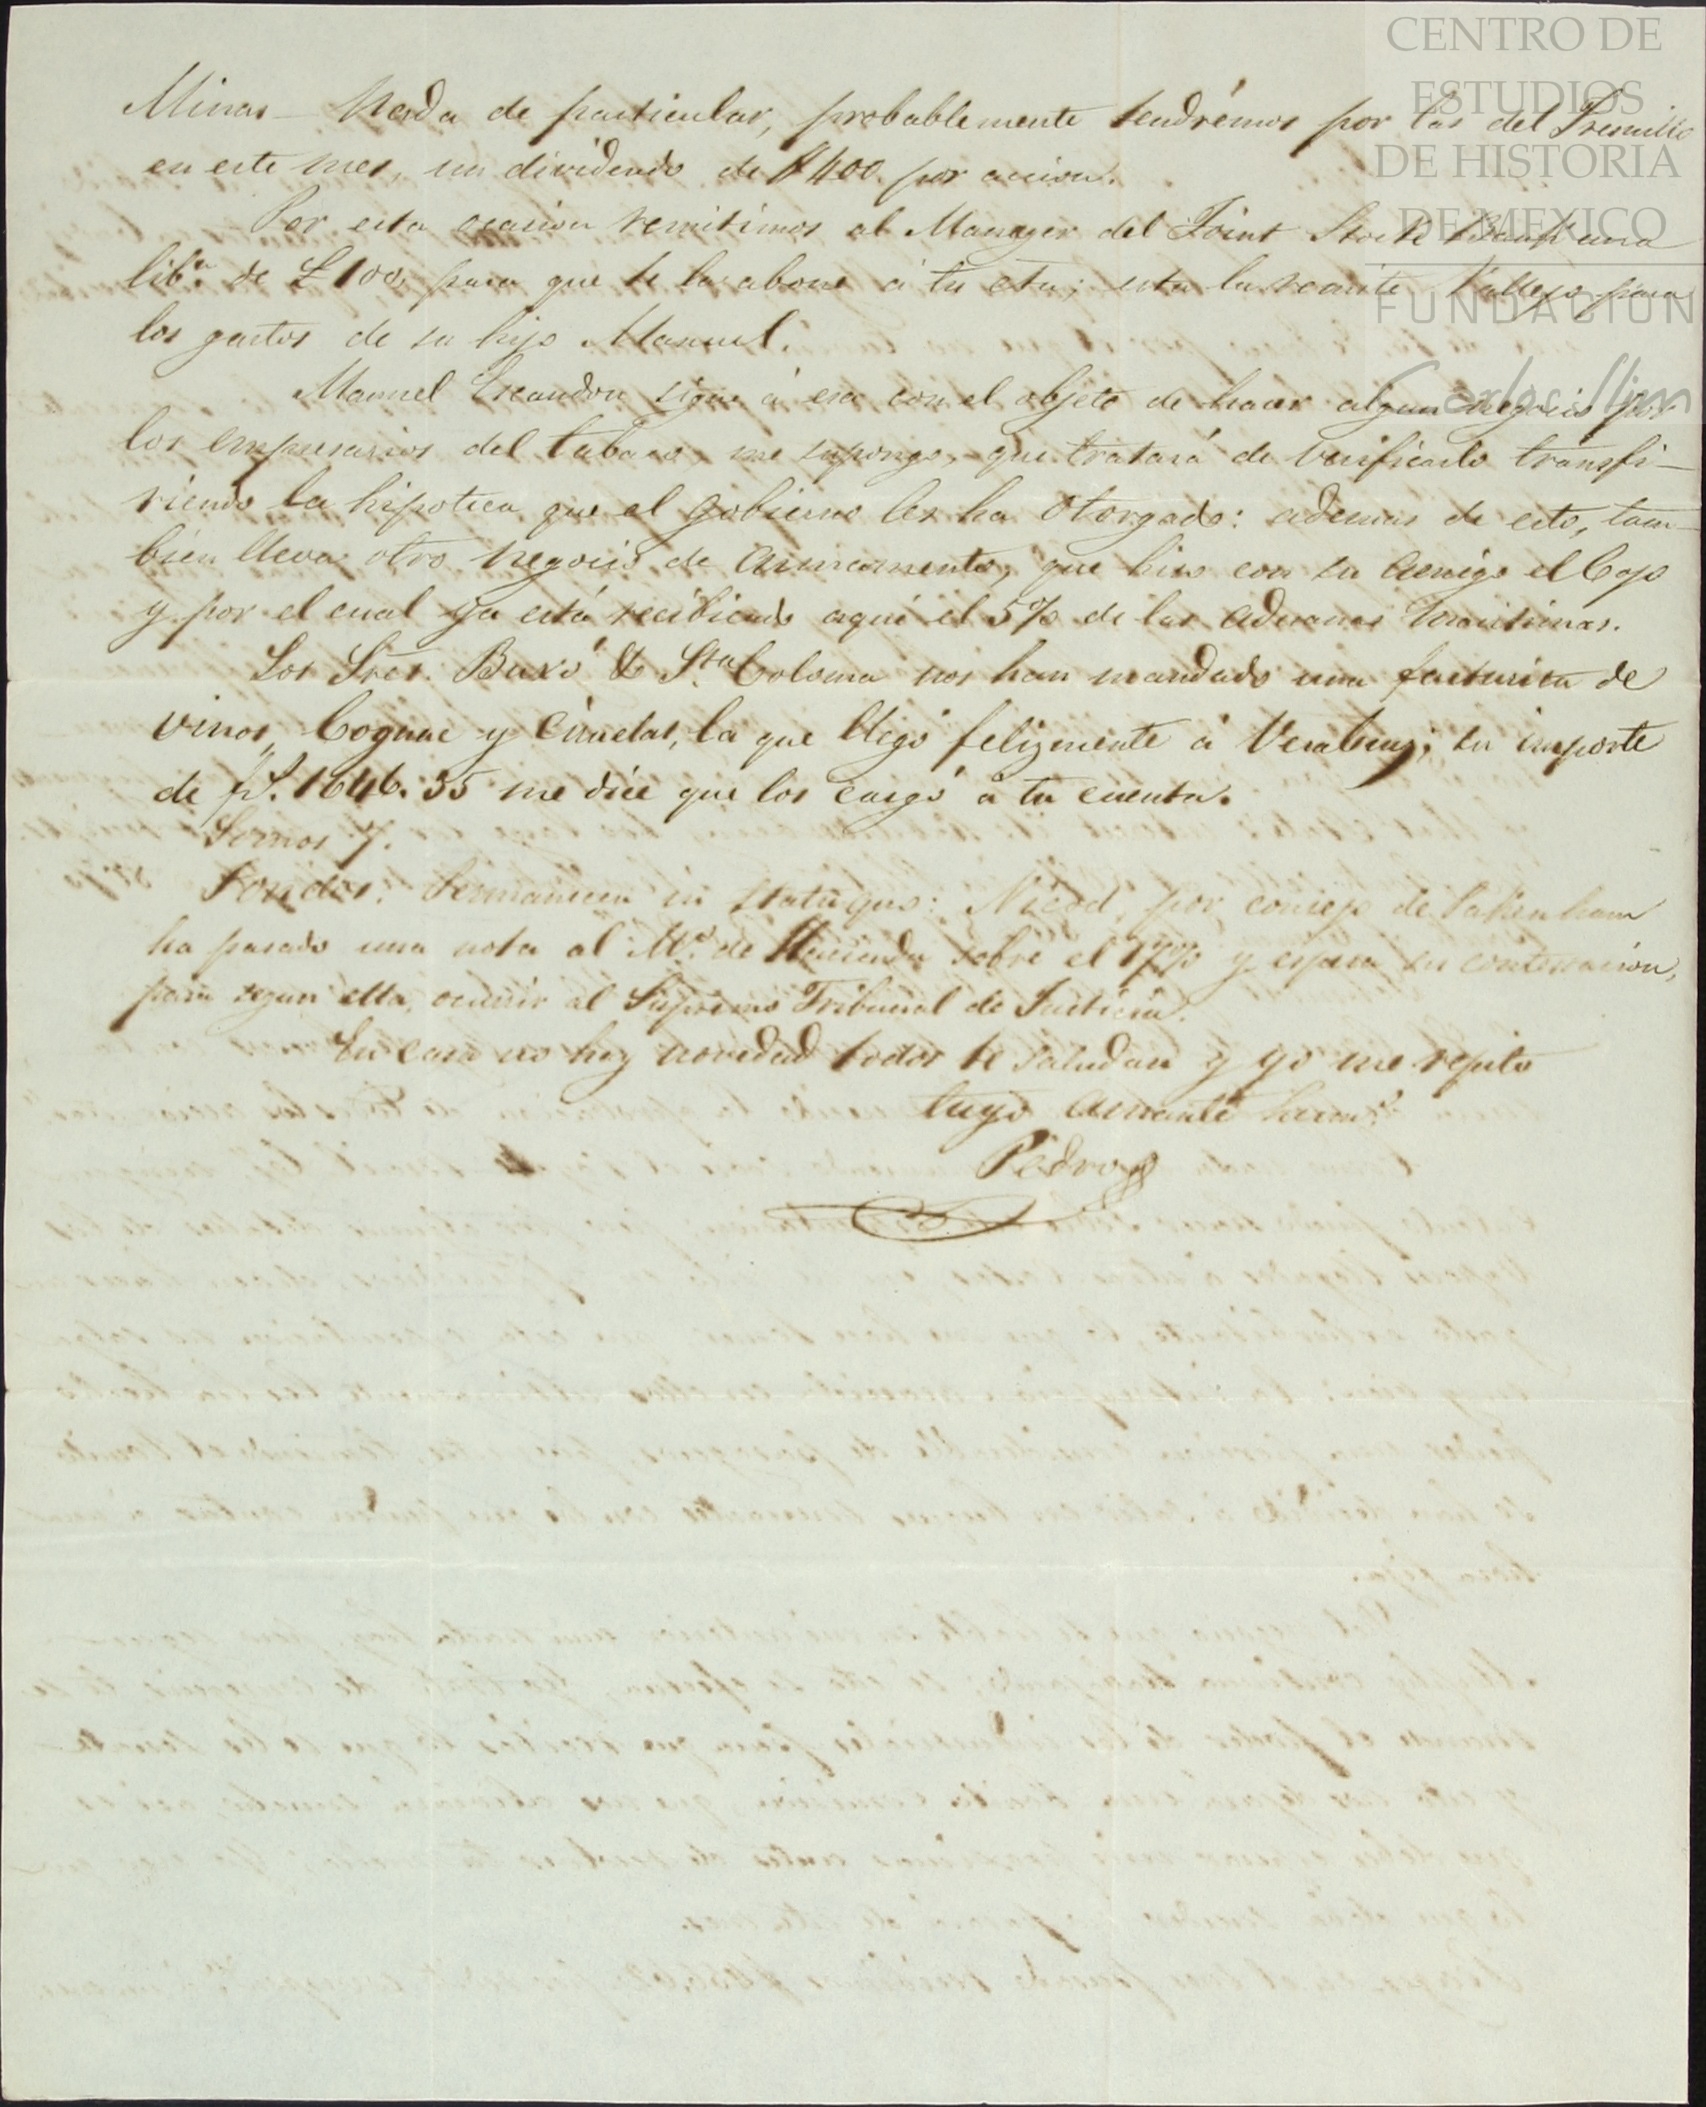 CENTRO DE
ESTUDIOS
DE HISTORIA
DE MEXICO
FUNDACION
Carlos Slim
Minas — Nada de particular, probablemente tendrémos por las del Fresnillo
en este mes, un dividendo de $400. por accion.
Por esta ocasion remitimos al Manager del Joint Stock Bank una
lib.ª de £100, para que te las abone á tu cta; esta la remite Vallejo para
los gastos de su hijo Manuel.
Manuel Escandon sigue á esa con el objeto de hacer algun negocio por
los empresarios del tabaco, me supongo, que tratará de verificarlo transfi-
riendo la hipoteca que el gobierno les ha otorgado: ademas de esto, tam-
bien lleva otro negocio de armamento, que hizo con su amigo el Cojo
y por el cual ya está recibiendo aqui el 5% de las aduanas maritimas.
Los Sres. Buxó & Sta. Coloma nos han mandado una facturita de
vinos, Cognac y Ciruelas, la que llegó felizmente á Veracruz; su importe
de fs. 1646.35 me dice que los cargó á tu cuenta.
Somos 7.
Fondos. Permanecen in statuquo: Nicod, por consejo de Pakenham
ha pasado una nota al M.º de Hacienda sobre el 17% y espera su contestacion,
para segun ella, ocurrir al Supremo Tribunal de Justicia.
En casa no hay novedad todos te saludan y yo me repito
tuyo amante herm.º
Pedro